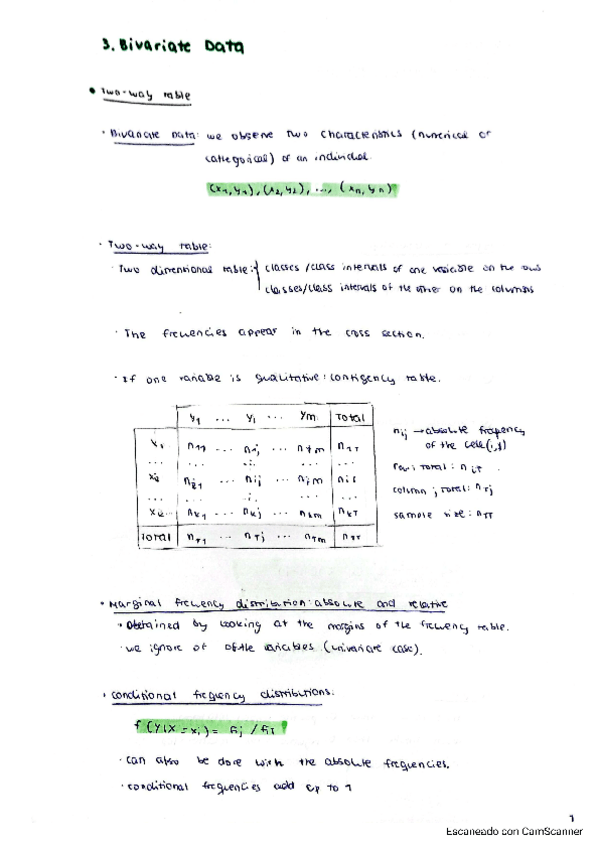 3. Bivariate Data
• Two-way table
· Bivariate Data: we observe two characteristics (numerical or
categorical) of an individual.
(x1, y1), (x2, y2), ..., (xn, yn)
· Two-way table:
· Two dimentional table: { classes/class intervals of one variable on the rows
classes/class intervals of the other on the columns
· The frecuencies appear in the cross section.
· If one variable is qualitative: contigency table.
y1 ... yj ... ym Total
x1 n11 ... n1j ... n1m n1T
... ... ... ... ...
xi ni1 ... nij ... nim niT
... ... ... ... ...
xk nk1 ... nkj ... nkm nkT
Total nT1 ... nTj ... nTm nTT
nij → absolute frequency
of the cell (i,j)
row i total: niT
column j total: nTj
sample size: nTT
· Marginal frecuency distribution: absolute and relative
· Obtained by looking at the margins of the frecuency table.
· we ignore of of the variables (univariate case).
· conditional frequency distributions:
f(y|X=xi) = fij / fiT
· can also be done with the absolute frequencies.
· conditional frequencies add up to 1
1
Escaneado con CamScanner